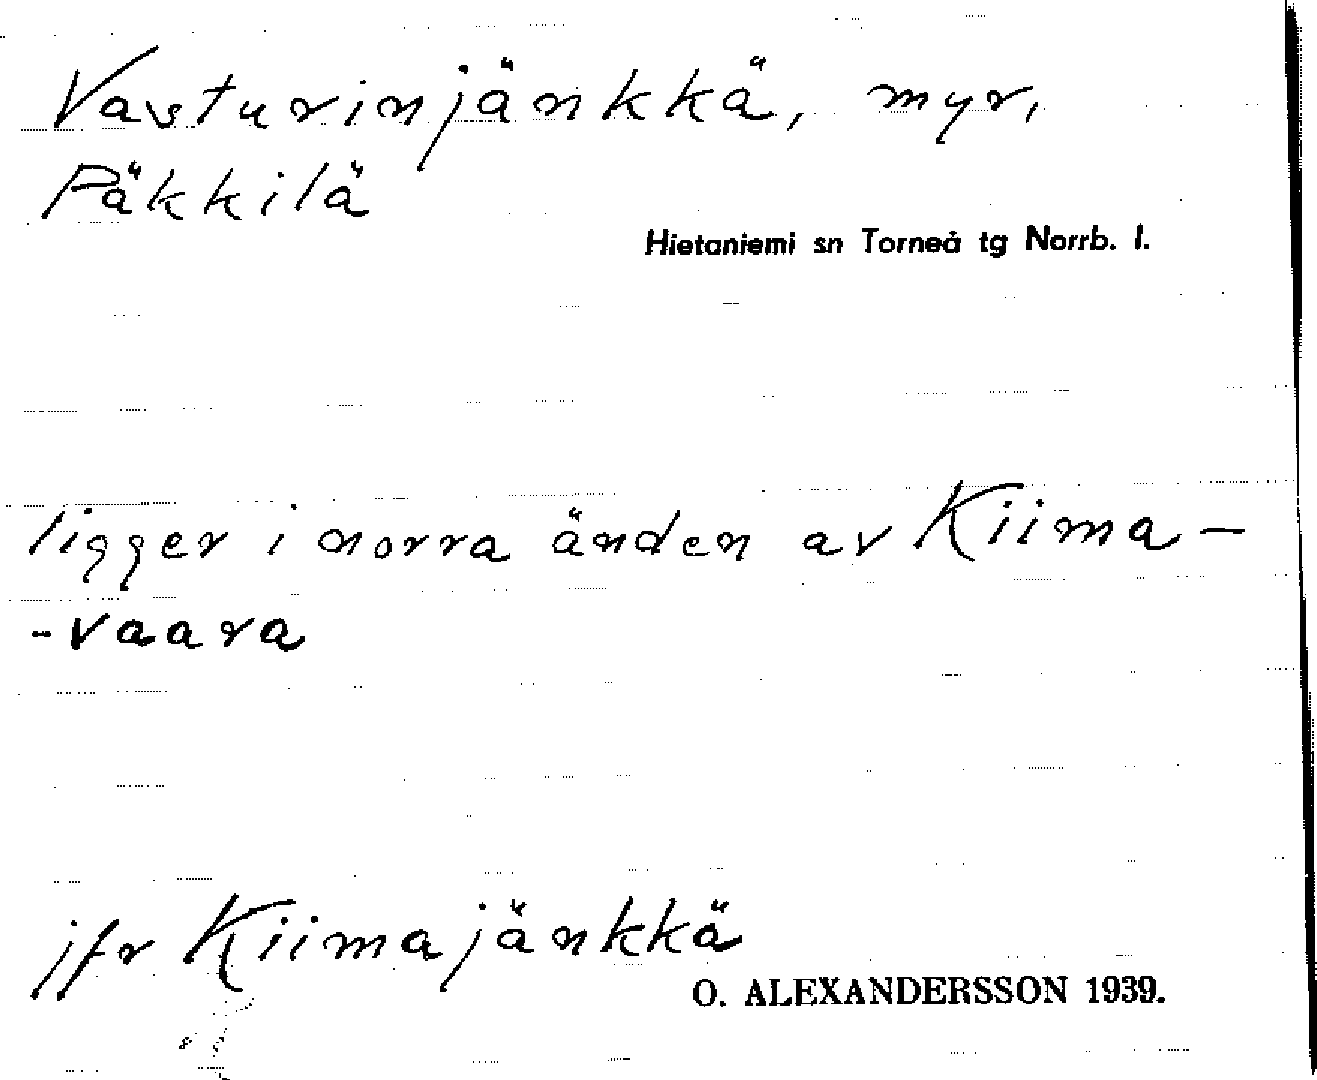 Vasturinjänkkä, myr,
Päkkilä
Hietaniemi sn Torneå tg Norrb. l.
ligger i norra änden av Kiima-
-vaara
jfr Kiimajänkkä
O. ALEXANDERSSON 1939.